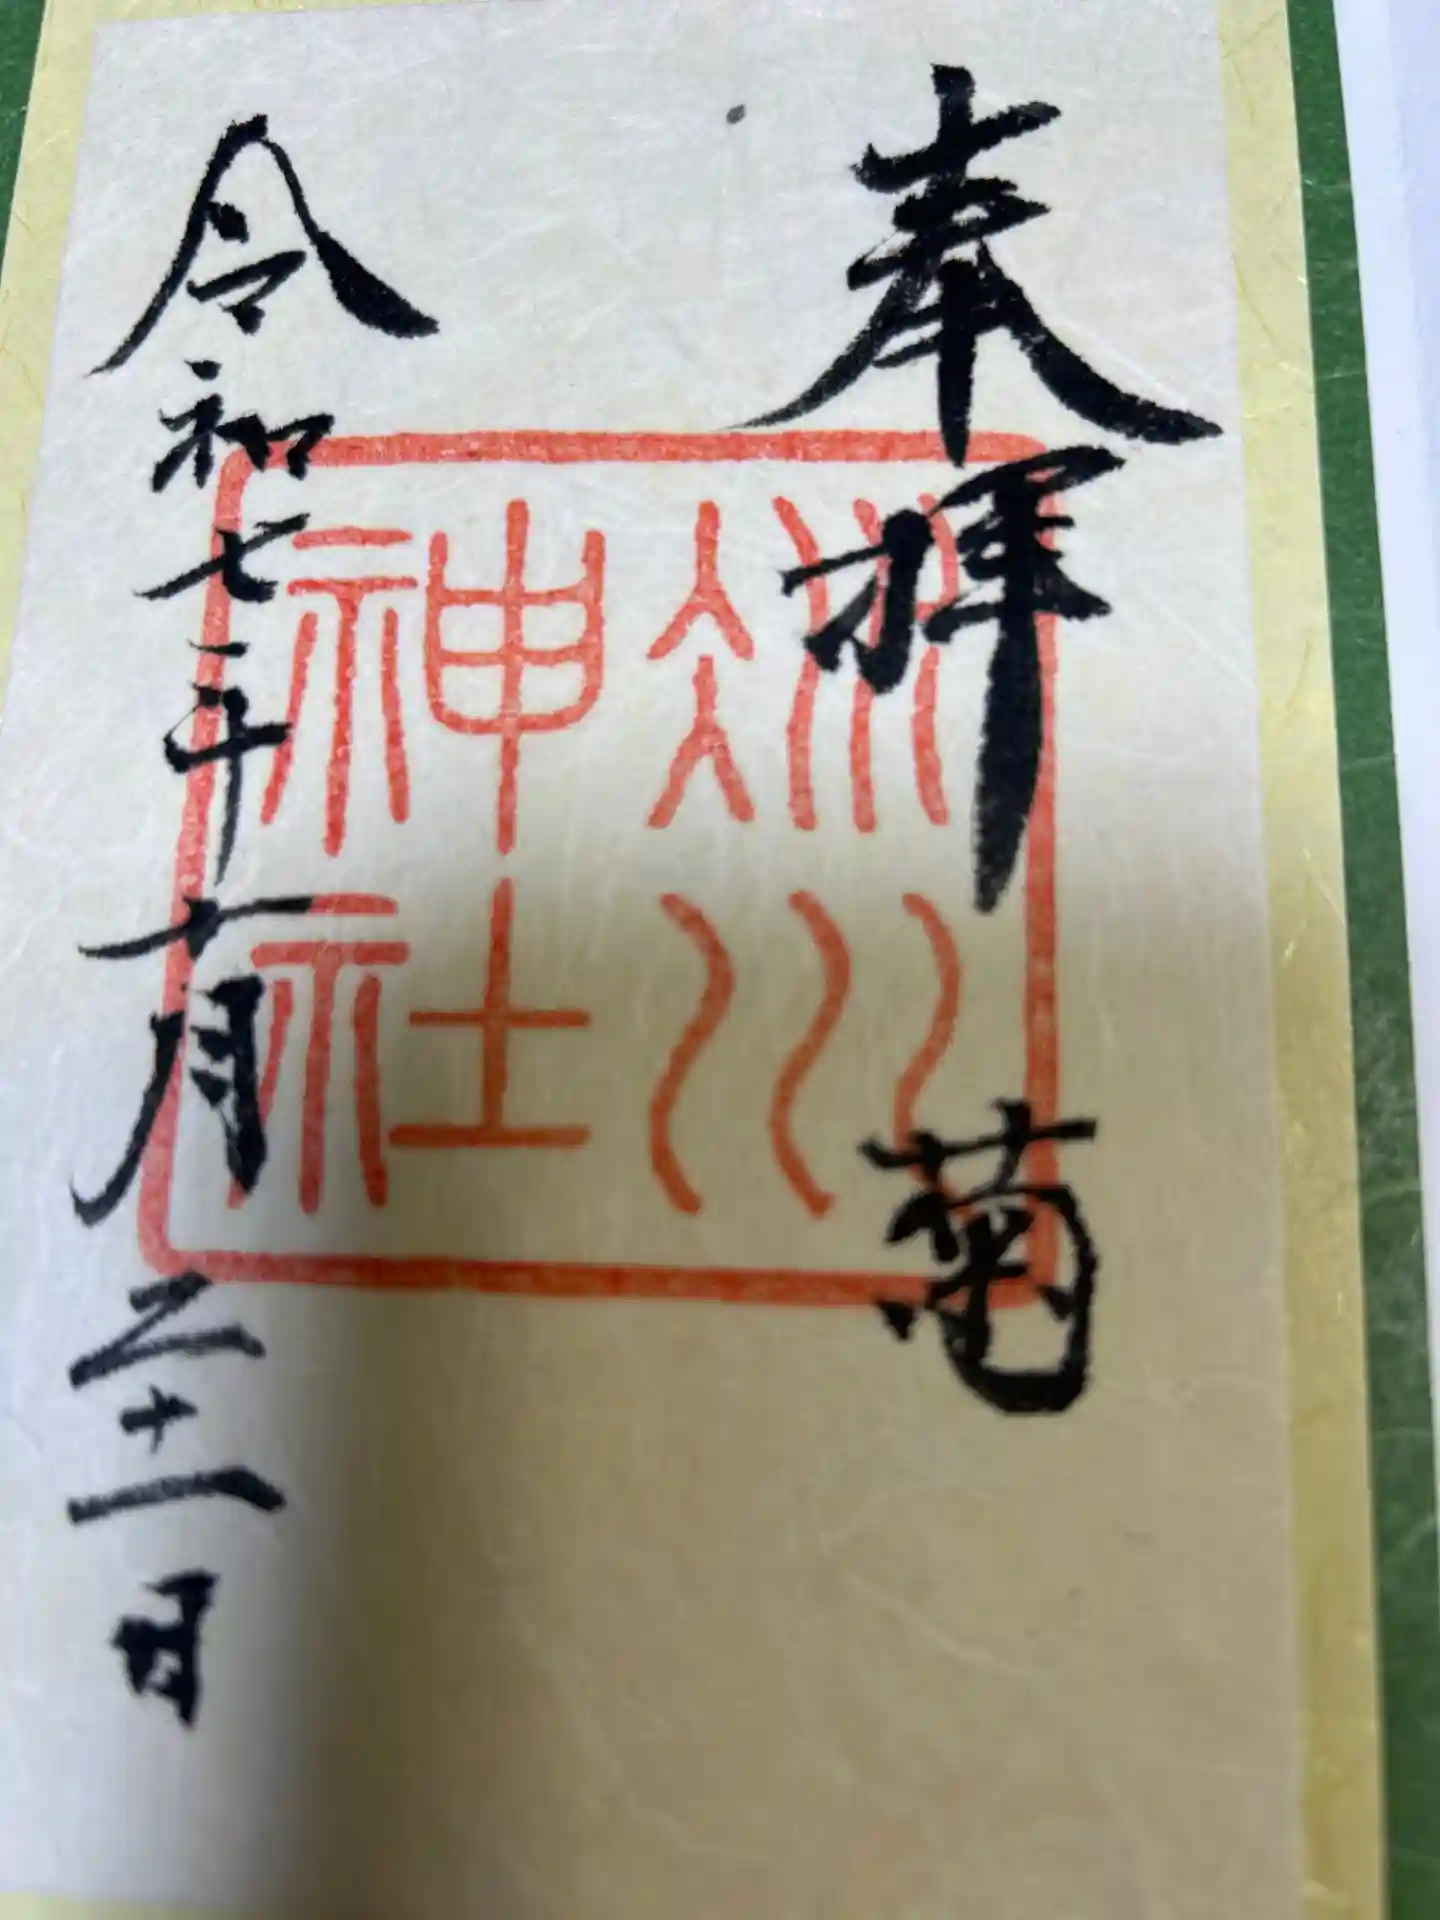 奉拝
菊
冰川
神社
令和七年十月二十一日